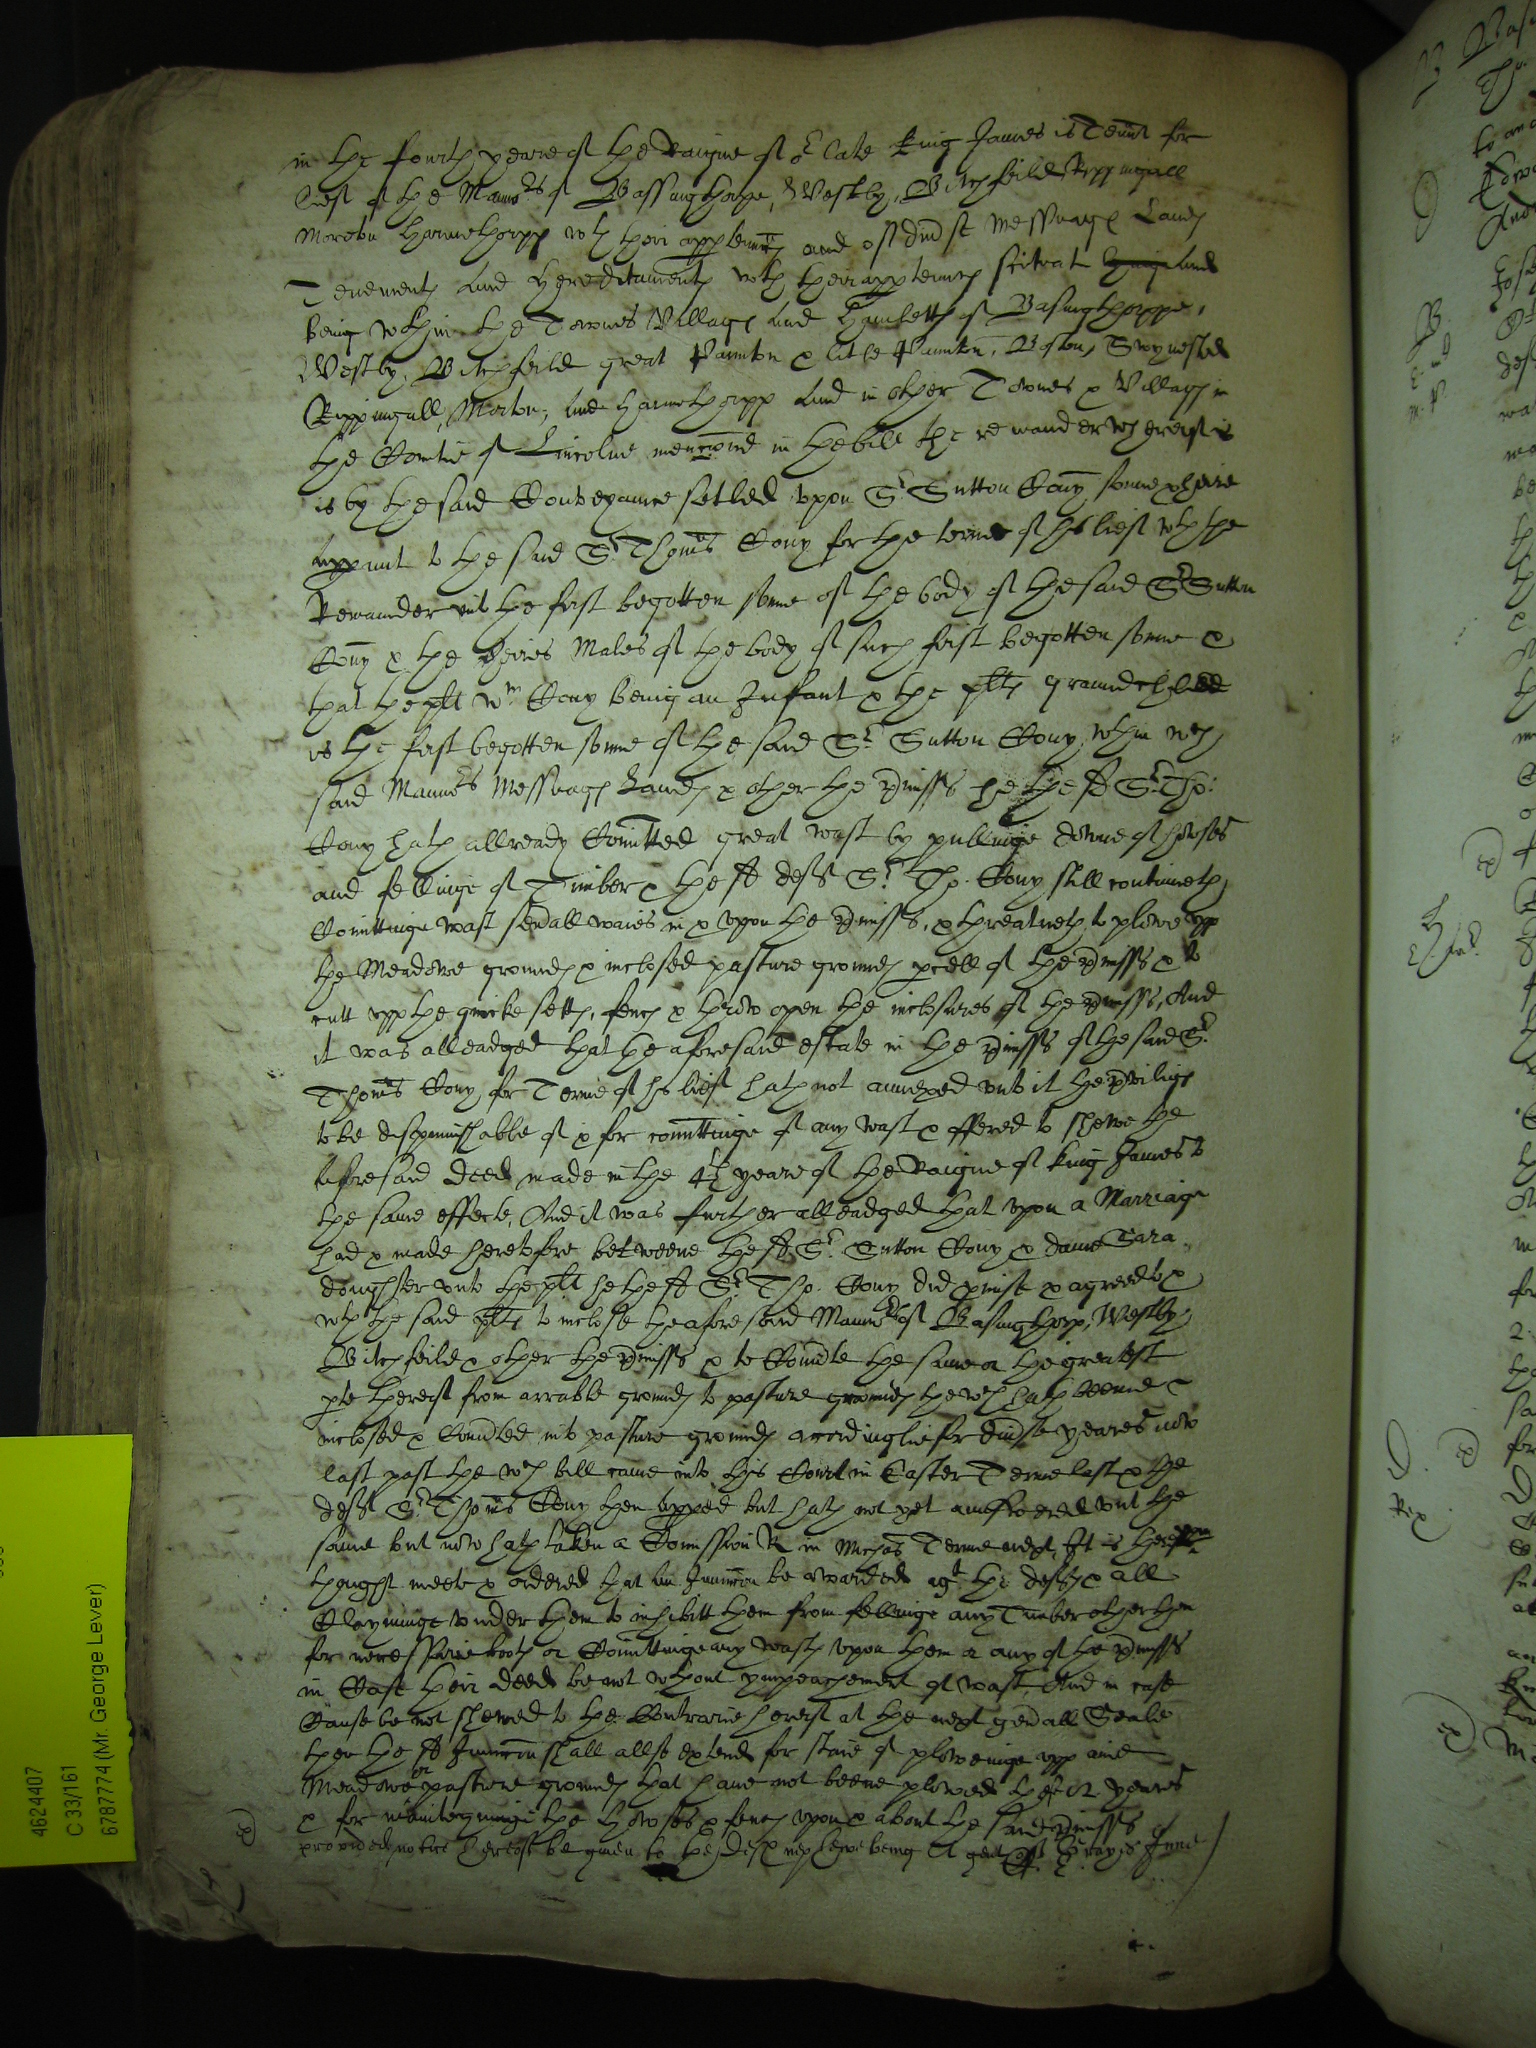 in the fourth yeare of the Raigne of or late King James is Tennt for
liefe of the Mannors of Bassingthorpe, Westby, Bitchfeild Rippingall
Morton Harmethorpp wth their apptennces and of divse Messuages Lands
Tenements and Hereditaments wth their apptennces scituat and
being wthin the Townes Villages and Hambletts of Basingthorppe,
Westby, Bitchfeild great Paunton & litle Paunton, Boston, Swynested
Rippingall, Morton, and Harmethorpp and in other Townes & Villages in
the Countie of Lincolne mencioned in the bill the remainder whereof is
is by the said Conveyaunce setled upon Sr Sutton Cony sonne & heire
appant to the said Sr Thomas Cony for the terme of his liefe wth the
Remainder unto the first begotten sonne of the body of the said Sr Sutton
Cony & the Heires Males of the body of such first begotten sonne &
that the plt Wm Cony being an Infant & the plts graundchild
is the first begotten sonne of the said Sr Sutton Cony, wthin wch
said Mannors Messuages Lands & other the pmisses he the sd Sr Tho:
Cony hath allready Comitted great wast by pullinge downe of howses
and fellinge of Timber & the sd deft Sr Tho. Cony still contineweth
Comittinge wast sevall waies in & upon the pmisses, & threatneth to plowe upp
the Meadowe grounds & inclosed pasture grounds pcell of the pmisses & to
cutt upp the quicke setts, fences & throw open the inclosures of the pmisses, And
it was alleadged that the aforesaid estate in the pmisses of the said Sr
Thomas Cony for Terme of his liefe hath not annexed unto it the priviledge
to be dispunishable of & for comittinge of any wast & offered to shewe the
aforesaid deed made in the 4th yeare of the Raigne of King James to
the same effecte, And it was further alleadged that upon a Marriage
had & made heretofore betweene the sd Sr Sutton Cony & dame Sara
doughter unto the plt he the sd Sr Tho. Cony did pmise & agreed to &
wth the said plts to inclose the aforesaid Mannors of Basingthorp, Westby,
Bitchfeild & other the pmisses & to Convte the same or the greatest
pte thereof from arrable grounds to pasture grounds the wch hath beene
inclosed & Convted into pasture grounds accordinglie for divse yeares now
last past the wch bill came into this Court in Easter Terme last & the
deft Sr Thomas Cony then apped but hath not yet aunswered unto the
same but now hath taken a Comission R in Michas Terme next, It is thereupon
thought meete & ordered that an Iniunccon be awarded agt the defts & all
Clayminge under them to inhibitt them from fellinge any Timber other then
for necessarie boots or Comittinge any wasts upon them or any of the pmisses
in Case their deeds be not wthout ympeachement of wast, And in case
Cause be not shewed to the Contrarie hereof at the next genall Seale
then the sd Iniunccon shall allso extend for staie of plowenige upp anie
Meadowe or pasture grounds that have not beene plowed theis 12 yeares
& for mainteyninge the howses & fences upon & about the said pmisses
provided notice hereof be given to the defts
4624407
C 33/161
6787774 (Mr. George Lever)